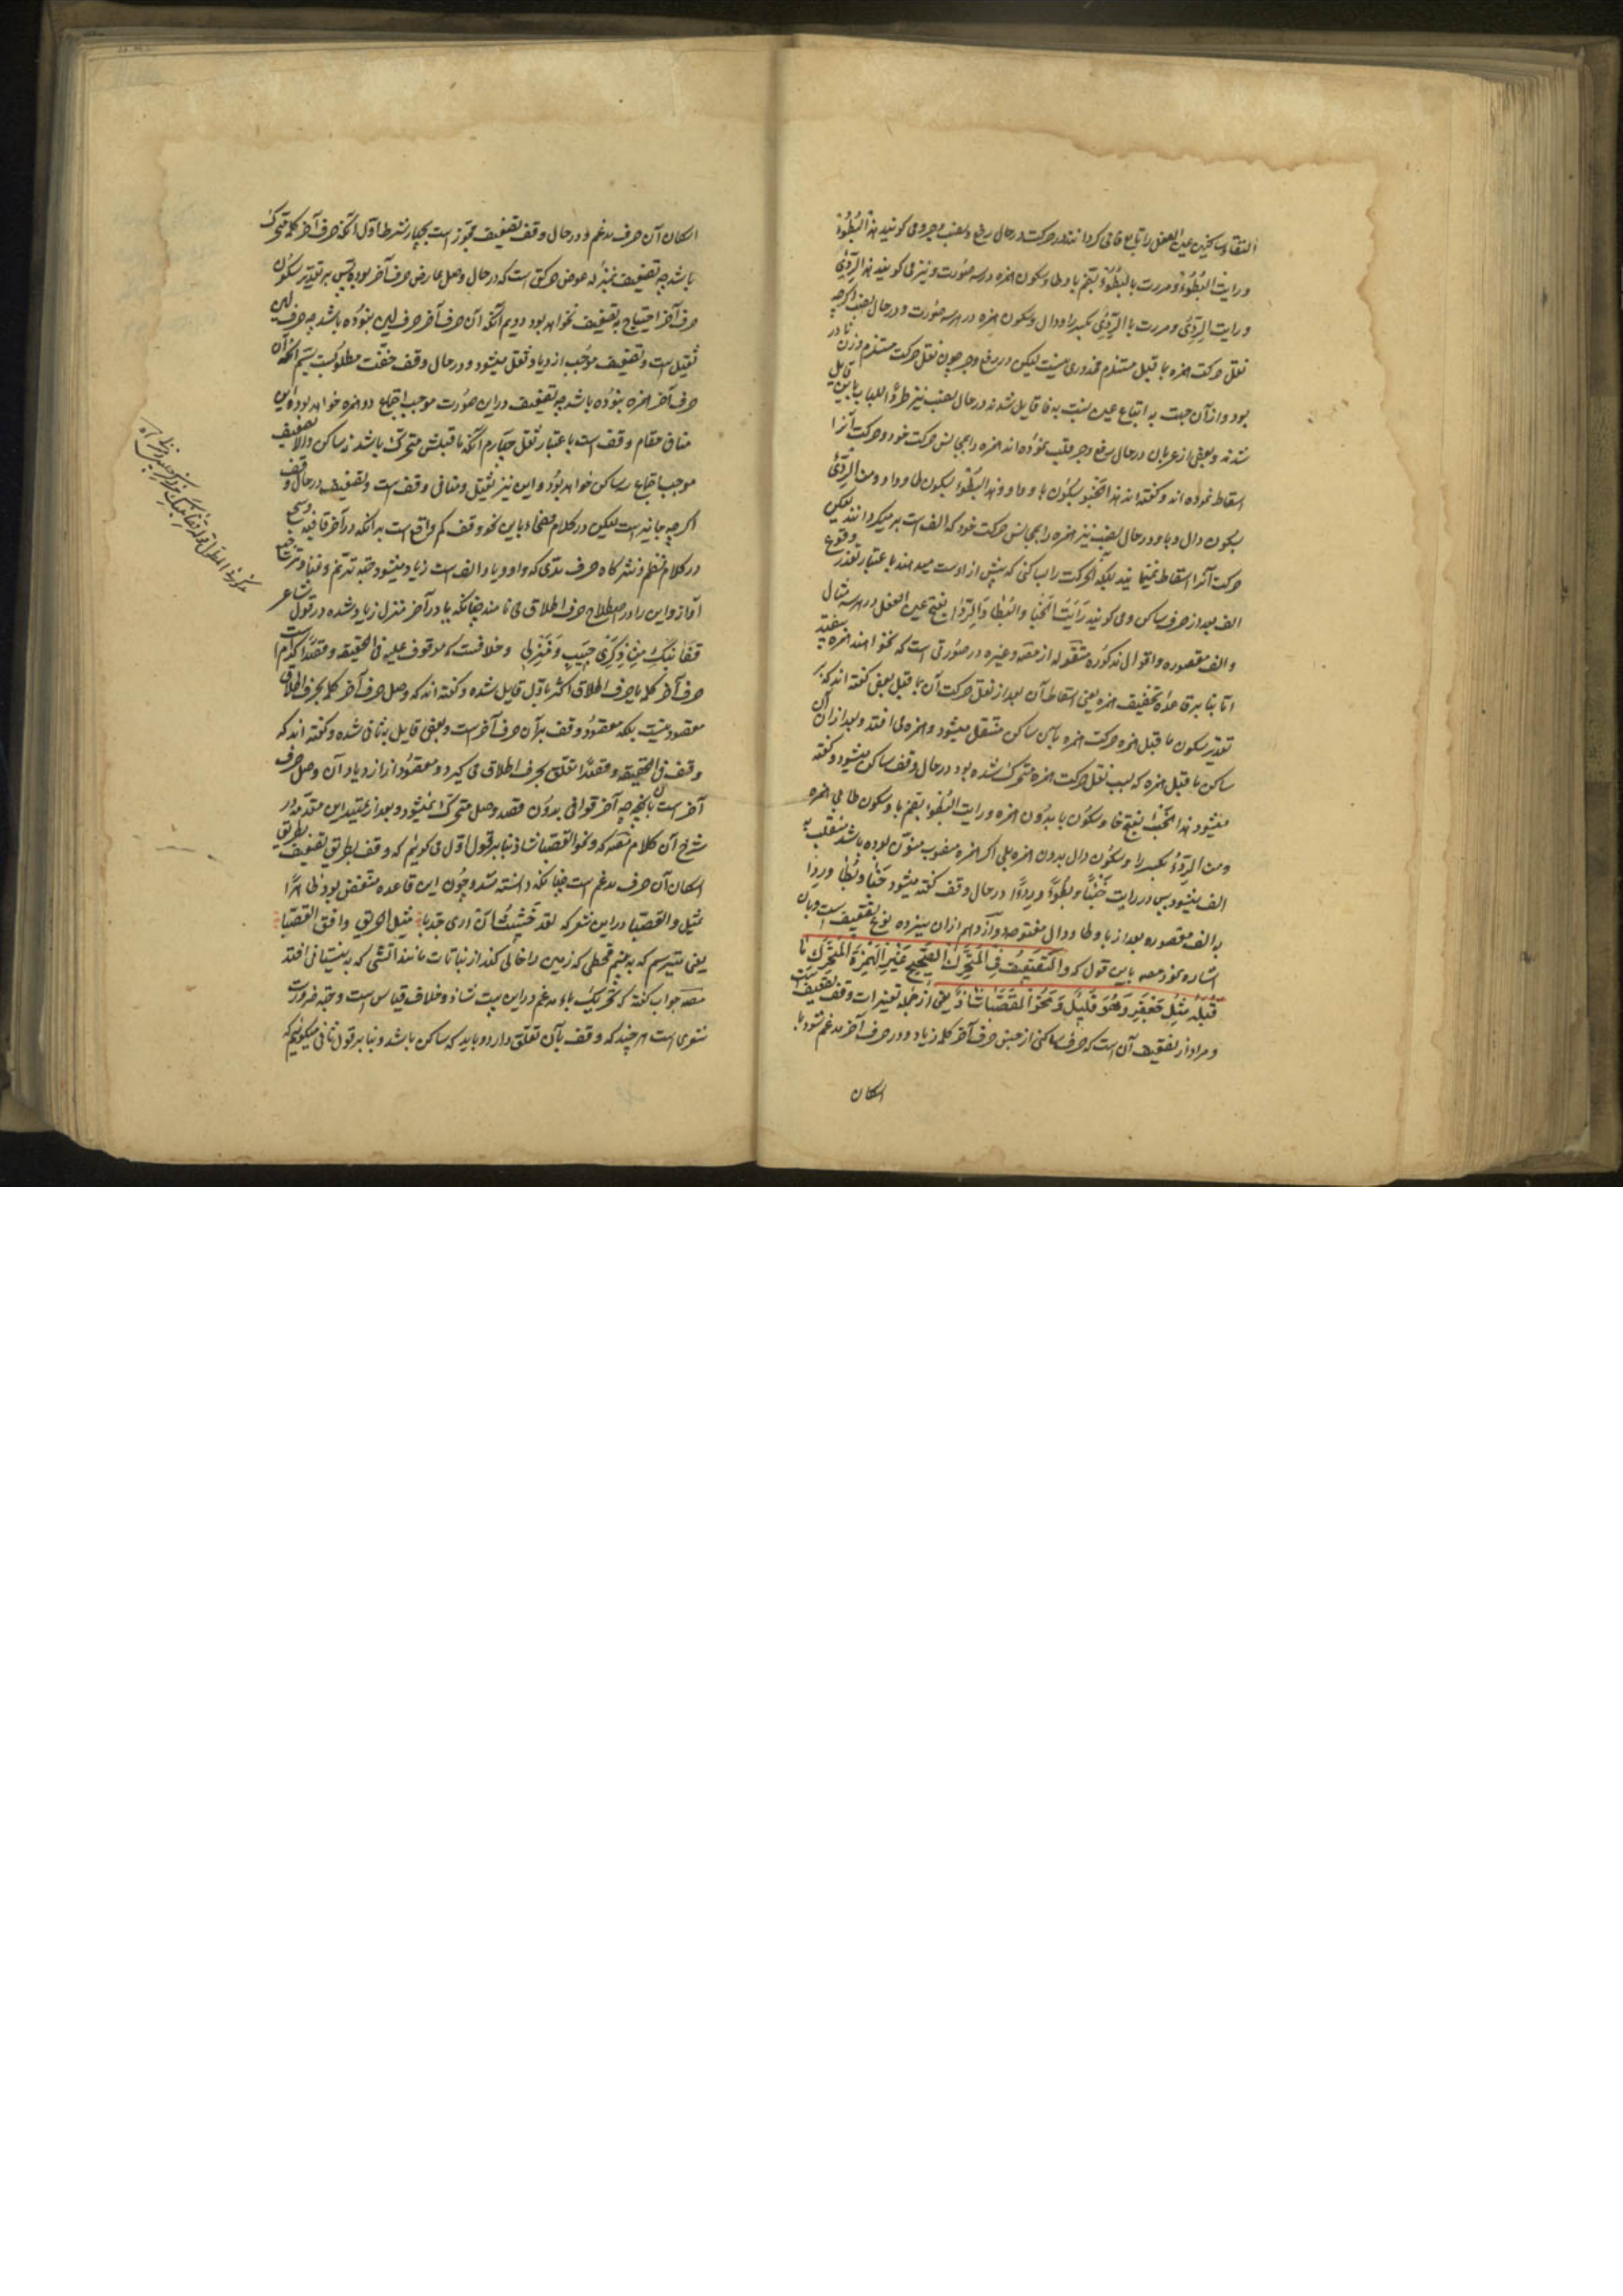 التقاء ساکنین عین الفعل را تابع فا می کردانند در حرکت در حال رفع و نصب و جر و می کویند هذا البُطُؤْ
و رایت البُطُؤْ و مررت بالبُطُؤْ بضم با و طا و سکون همزه در سه صورت و نیز می کویند هذا الرِّدِئْ
و رایت الرِّدِئْ و مررت بالرِّدِئْ بکسر را و دال و سکون همزه در هر سه صورت و در حال نصب اکرچه
نقل حرکت همزه بما قبل مستلزم محذوری نیست لیکن در رفع و جر چون نقل حرکت مستلزم وزن نادر
بود و از آن جهت به اتباع عین نسبت به فا قایل شدند در حال نصب نیز طردًا للباب باین قایل
شدند و بعضی از عربان در حال رفع و جر قلب نموده اند همزه را بجانس حرکت خود و حرکت آنرا
اسقاط نموده اند و کفته اند هذا الخبو بسکون با و واو و هذا البطو بسکون طا و واو و من الرِّدْیْ
بسکون دال و یا و در حال نصب نیز همزه را بجانس حرکت خود که الف است بر میکردانند لیکن
حرکت آنرا اسقاط نمینمایند بلکه آنحرکت را بساکنی که پیش از اوست میدهند باعتبار تعذر وقوع
الف بعد از حرف ساکن و می کویند رَایَتُ الخَبَا و البُطَا و الرِّدَا بفتح عین الفعل در هر سه مثال
و الف مقصوره و اقوال مذکوره منقوله از مصه و غیره در صورتی است که نخواهند همزه تخفیف
اما بنا بر قاعده تخفیف همزه یعنی اسقاط آن بعد از نقل حرکت آن بما قبل بعضی کفته اند که بر
تقدیر سکون ما قبل همزه حرکت همزه باین ساکن منتقل میشود و همزه می افتد و بعد از آن آن
ساکن ما قبل همزه که بسبب نقل حرکت همزه متحرک شده بود در حال وقف ساکن میشود و کفته
میشود هذا الخَبْ بفتح خا و سکون با بدون همزه و رایت البُطْ بضم با و سکون طا بی همزه
و من الرِّدْ بکسر را و سکون دال بدون همزه بلی اکر همزه منصوب منون بوده باشد منقلب به
الف میشود پس در رایت خَبْئًا و بُطْئًا و رِدْئًا در حال وقف کفته میشود خَبَا و بُطَا و رِدَا
به الف مقصوره بعد از با و طا و دال مفتوحه و از دهم از آن سیزده نوع تضعیف است و بآن
اشاره نموده مصه باین قول که و التَّضْعِیْفُ فِی الْمُتَحَرِّكِ الصَّحِیْحِ غَیْرِ الْهَمْزَةِ الْمُتَحَرِّكِ مَا
قَبْلَهُ مِثْلُ جَعْفَرّ وَ هُوَ قَلِیْلٌ وَ نَحْوُ الْقَصَبَّا شَاذٌّ یعنی از جمله تغییرات وقف تضعیف است
و مراد از تضعیف آن است که حرف ساکنی از جنس حرف آخر کلمه زیاد و در حرف آخر مدغم شود با
اسکان
اسکان آن حرف مدغم و در حال وقف تضعیف مجوز است بچهار شرط اول آنکه حرف آخر کلمه متحرک
باشد چه تضعیف بمنزله عوض حرکتی است که در حال وصل عارض حرف آخر بوده پس بر تقدیر سکون
حرف آخر احتیاج به تضعیف نخواهد بود دویم آنکه آن حرف آخر حرف لین نبوده باشد چه حرف لین
ثقیل است و تضعیف موجب ازدیاد ثقل میشود و در حال وقف خفت مطلوبست سیم آنکه آن
حرف آخر همزه نبوده باشد چه تضعیف در این صورت موجب اجتماع دو همزه خواهد بود و این
منافی مقام وقف است باعتبار ثقل چهارم آنکه ما قبلش متحرک باشد نه ساکن و الا تضعیف
موجب اجتماع سه ساکن خواهد بود و این نیز ثقیل و منافی وقف است و تضعیف در حال وقف
اکرچه جایز است لیکن در کلام فصحاء باین نحو وقف کم واقع است بدانکه در آخر قافیه و سجع
در کلام نظم و نثر کاه حرف مدی که واو و یا و الف است زیاد میشود جهة ترنم و غنا و ترجیع
آواز و این را در اصطلاح حرف اطلاق می نامند چنانکه یا در آخر منزل زیاد شده در قول شاعر
قِفَا نَبْكِ مِنْ ذِكْرَىٰ حَبِیْبٍ وَ مَنْزِلِی و خلافست که موقوف علیه فی الحقیقه و مقصد کدام است
حرف آخر کلمه یا حرف اطلاق اکثر باول قایل شده و کفته اند که وصل حرف آخر کلمه بحرف اطلاق
مقصود نیست بلکه مقصود وقف بر آن حرف آخر است و بعضی قایل به ثانی شده و کفته اند که
وقف فی الحقیقه و مقصدًا تعلق بحرف اطلاق می کیرد و مقصود از ازدیاد آن وصل حرف
آخر است بآن چه آخر قوافی بدون قصد وصل متحرک نمیشود و بعد از تمهید این مقدمه در
شرح آن کلام مصه که و نحو القصبا شاذ بنا بر قول اول می کویم که وقف بطریق تضعیف بطریق
اسکان آن حرف مدغم است چنانکه دانسته شد و چون این قاعده منتقض بود ظاهرًا
بمثل و القصبا در این شعر که لقد خَشِیْتُ ان اری جدبا مثل الحریق وافق القصبا
یعنی میترسم که به بینم قحطی که زمین را خالی کند از نباتات مانند آتشی که به نیستانی افتد
مصه جواب کفته که تحریک باء مدغم در این بیت شاذ و خلاف قیاس است و جهة ضرورت
شعری است هر چند که وقف بآن تعلق دارد و باید که ساکن باشد و بنا بر قول ثانی میکوییم که